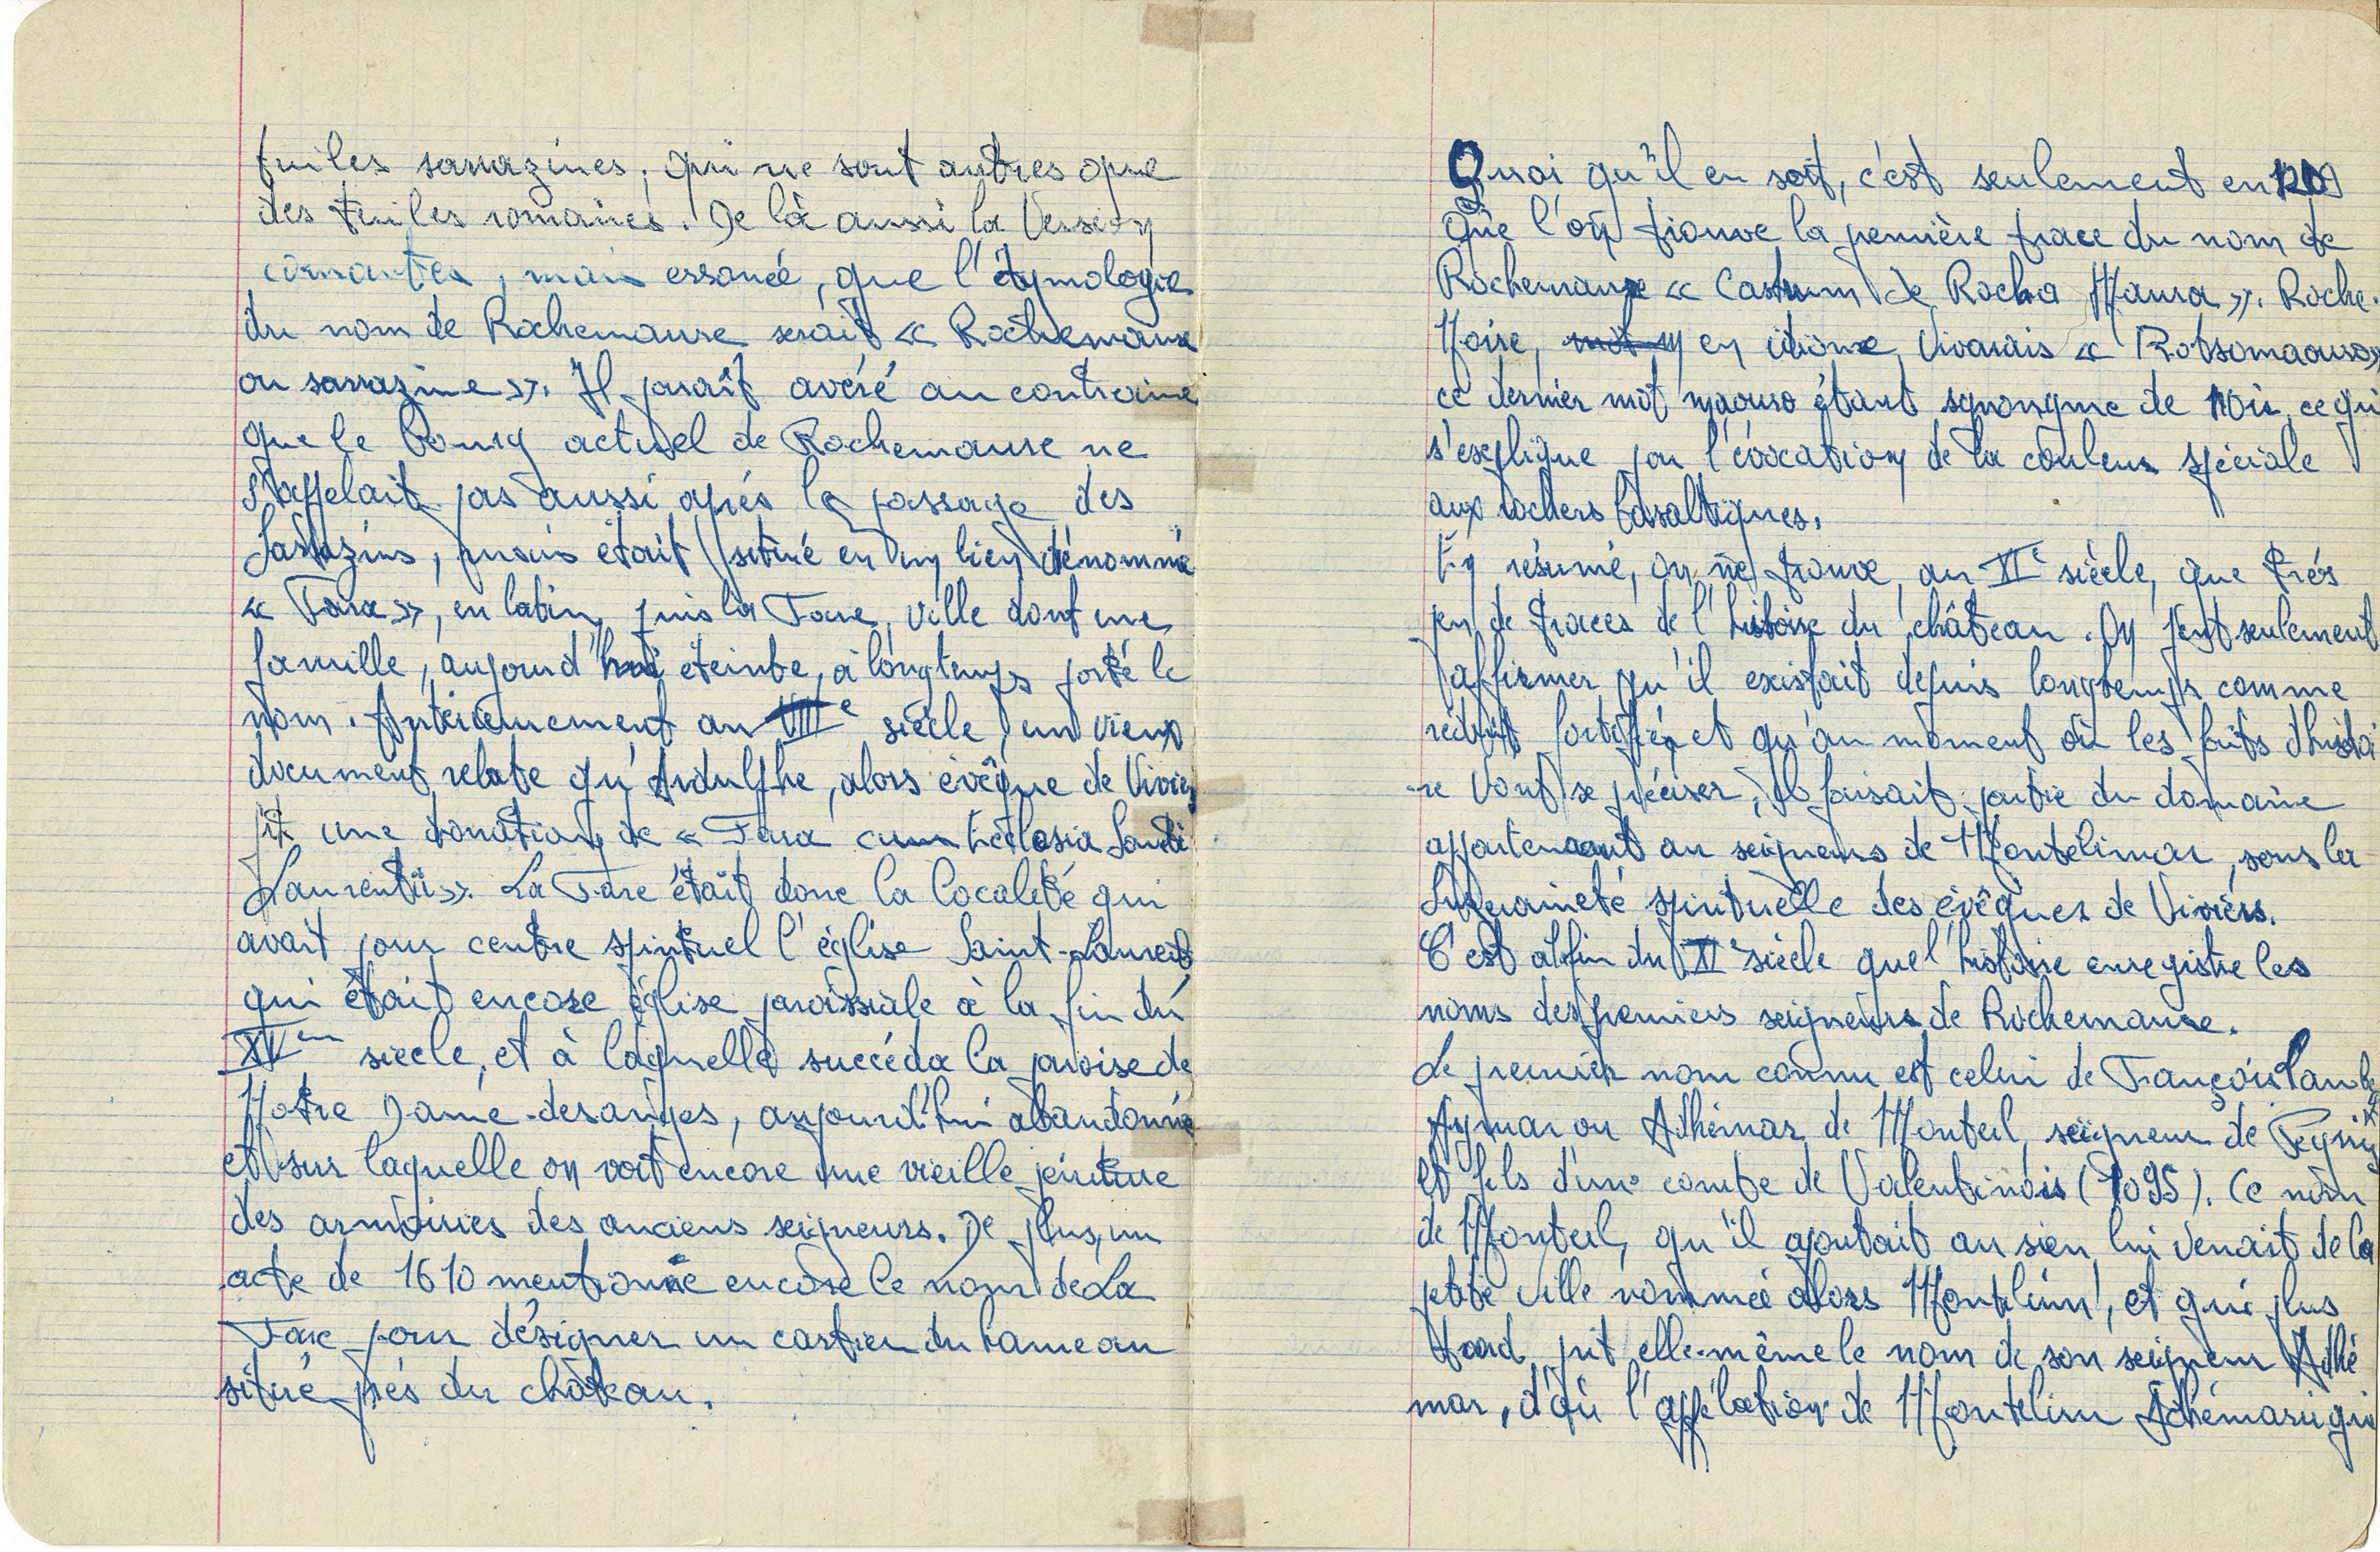 tuiles sarrazines, qui ne sont autres que
des tuiles romaines. De là aussi la Version
courantes, mais erronée, que l'étymologie
du nom de Rochemaure serait « Rochemaure
ou sarrazine ». Il paraît avéré au contraire
que le bourg actuel de Rochemaure ne
s'appelait pas aussi après le passage des
Sarrazins, mais était situé en un lieu dénommé
« Fara », en latin, puis la Fare, ville dont une
famille, aujourd'hui éteinte, a longtemps porté le
nom. Antérieurement au VIIIe siècle, un vieux
document relate qu'Ardulphe, alors évêque de Viviers
fit une donation de « Fara cum Ecclesia Sancti
Laurentii ». La Fare était donc la localité qui
avait pour centre spirituel l'église Saint-Laurent
qui était encore église paroissiale à la fin du
XVem siècle, et à laquelle succéda la paroise de
Notre Dame-des anges, aujourd'hui abandonnée
et sur laquelle on voit encore une vieille peinture
des armoiries des anciens seigneurs. De plus, un
acte de 1610 mentionne encore le nom de La
Fare pour désigner un cartier du hameau
situé près du château.
Quoi qu'il en soit, c'est seulement en
Que l'on trouve la première trace du nom de
Rochemaure « Castrum de Rocha Maura ». Roche.
Noire, en idiome Vivarais « Rotsomaouro »
ce dernier mot maouro étant synonyme de noir, ce qui
s'explique par l'évocation de la couleur spéciale
aux rochers basaltiques.
En résumé, on ne trouve, au XIe siècle, que très
peu de traces de l'histoire du château. On peut seulement
affirmer qu'il existait depuis longtemps comme
réduit fortifié, et qu'au moment où les faits d'histoi
-re vont se préciser, il faisait partie du domaine
appartenant au seigneurs de Montélimar, sous la
Suzeraineté spirituelle des évêques de Viviers.
C'est al fin du XIe siècle que l'histoire enregistre les
noms des premiers seigneurs de Rochemaure.
Le premier nom connu est celui de François
Aymar ou Adhémar de Monteil, seigneur de
et fils d'un comte de Valentinois (1095). Ce nom
de Monteil, qu'il ajoutait au sien lui venait de la
petite ville nommée alors, et qui plus
tard prit elle-même le nom de son seigneur Adhé
mar, d'où l'appélation de Montelim Adhémar, qui